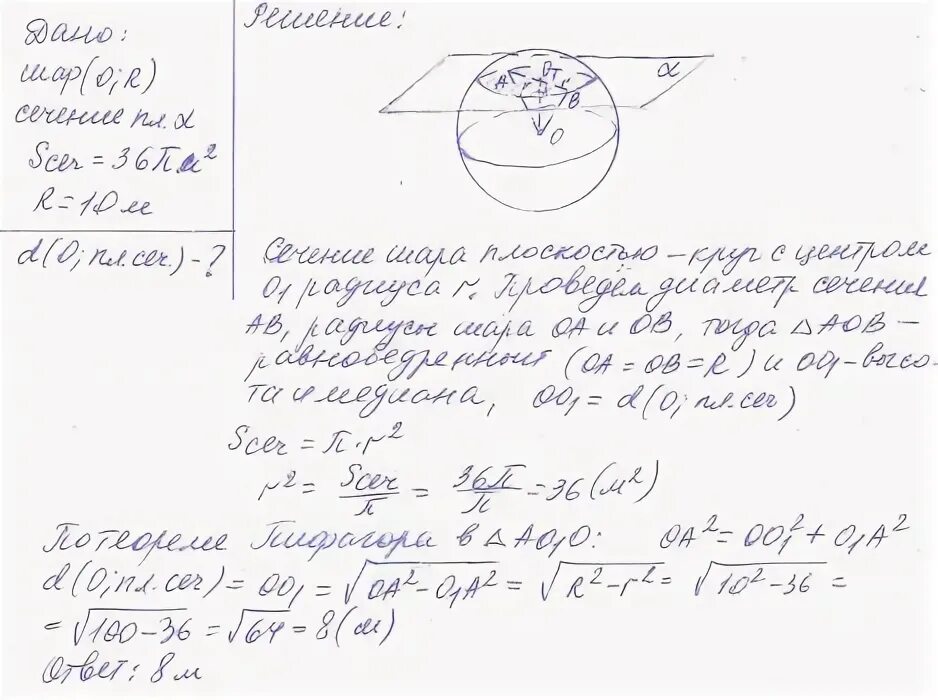 Дано:
шар(O;R)
сечение пл.α
Sсеч = 36π м²
R = 10 м
d(O; пл.сеч.) - ?
Решение:
α
A
O₁
r
r
B
O
Сечение шара плоскостью – круг с центром
O₁ радиуса r. Проведём диаметр сечения
AB, радиусы шара OA и OB, тогда △AOB –
равнобедренный (OA = OB = R) и OO₁ - высо-
та и медиана, OO₁ = d(O; пл.сеч)
Sсеч = π · r²
r² = Sсеч/π = 36π/π = 36 (м²)
По теореме Пифагора в △AO₁O: OA² = OO₁² + O₁A²
d(O; пл.сеч) = OO₁ = √(OA² - O₁A²) = √(R² - r²) = √(10² - 36) =
= √(100 - 36) = √64 = 8 (м)
Ответ: 8 м